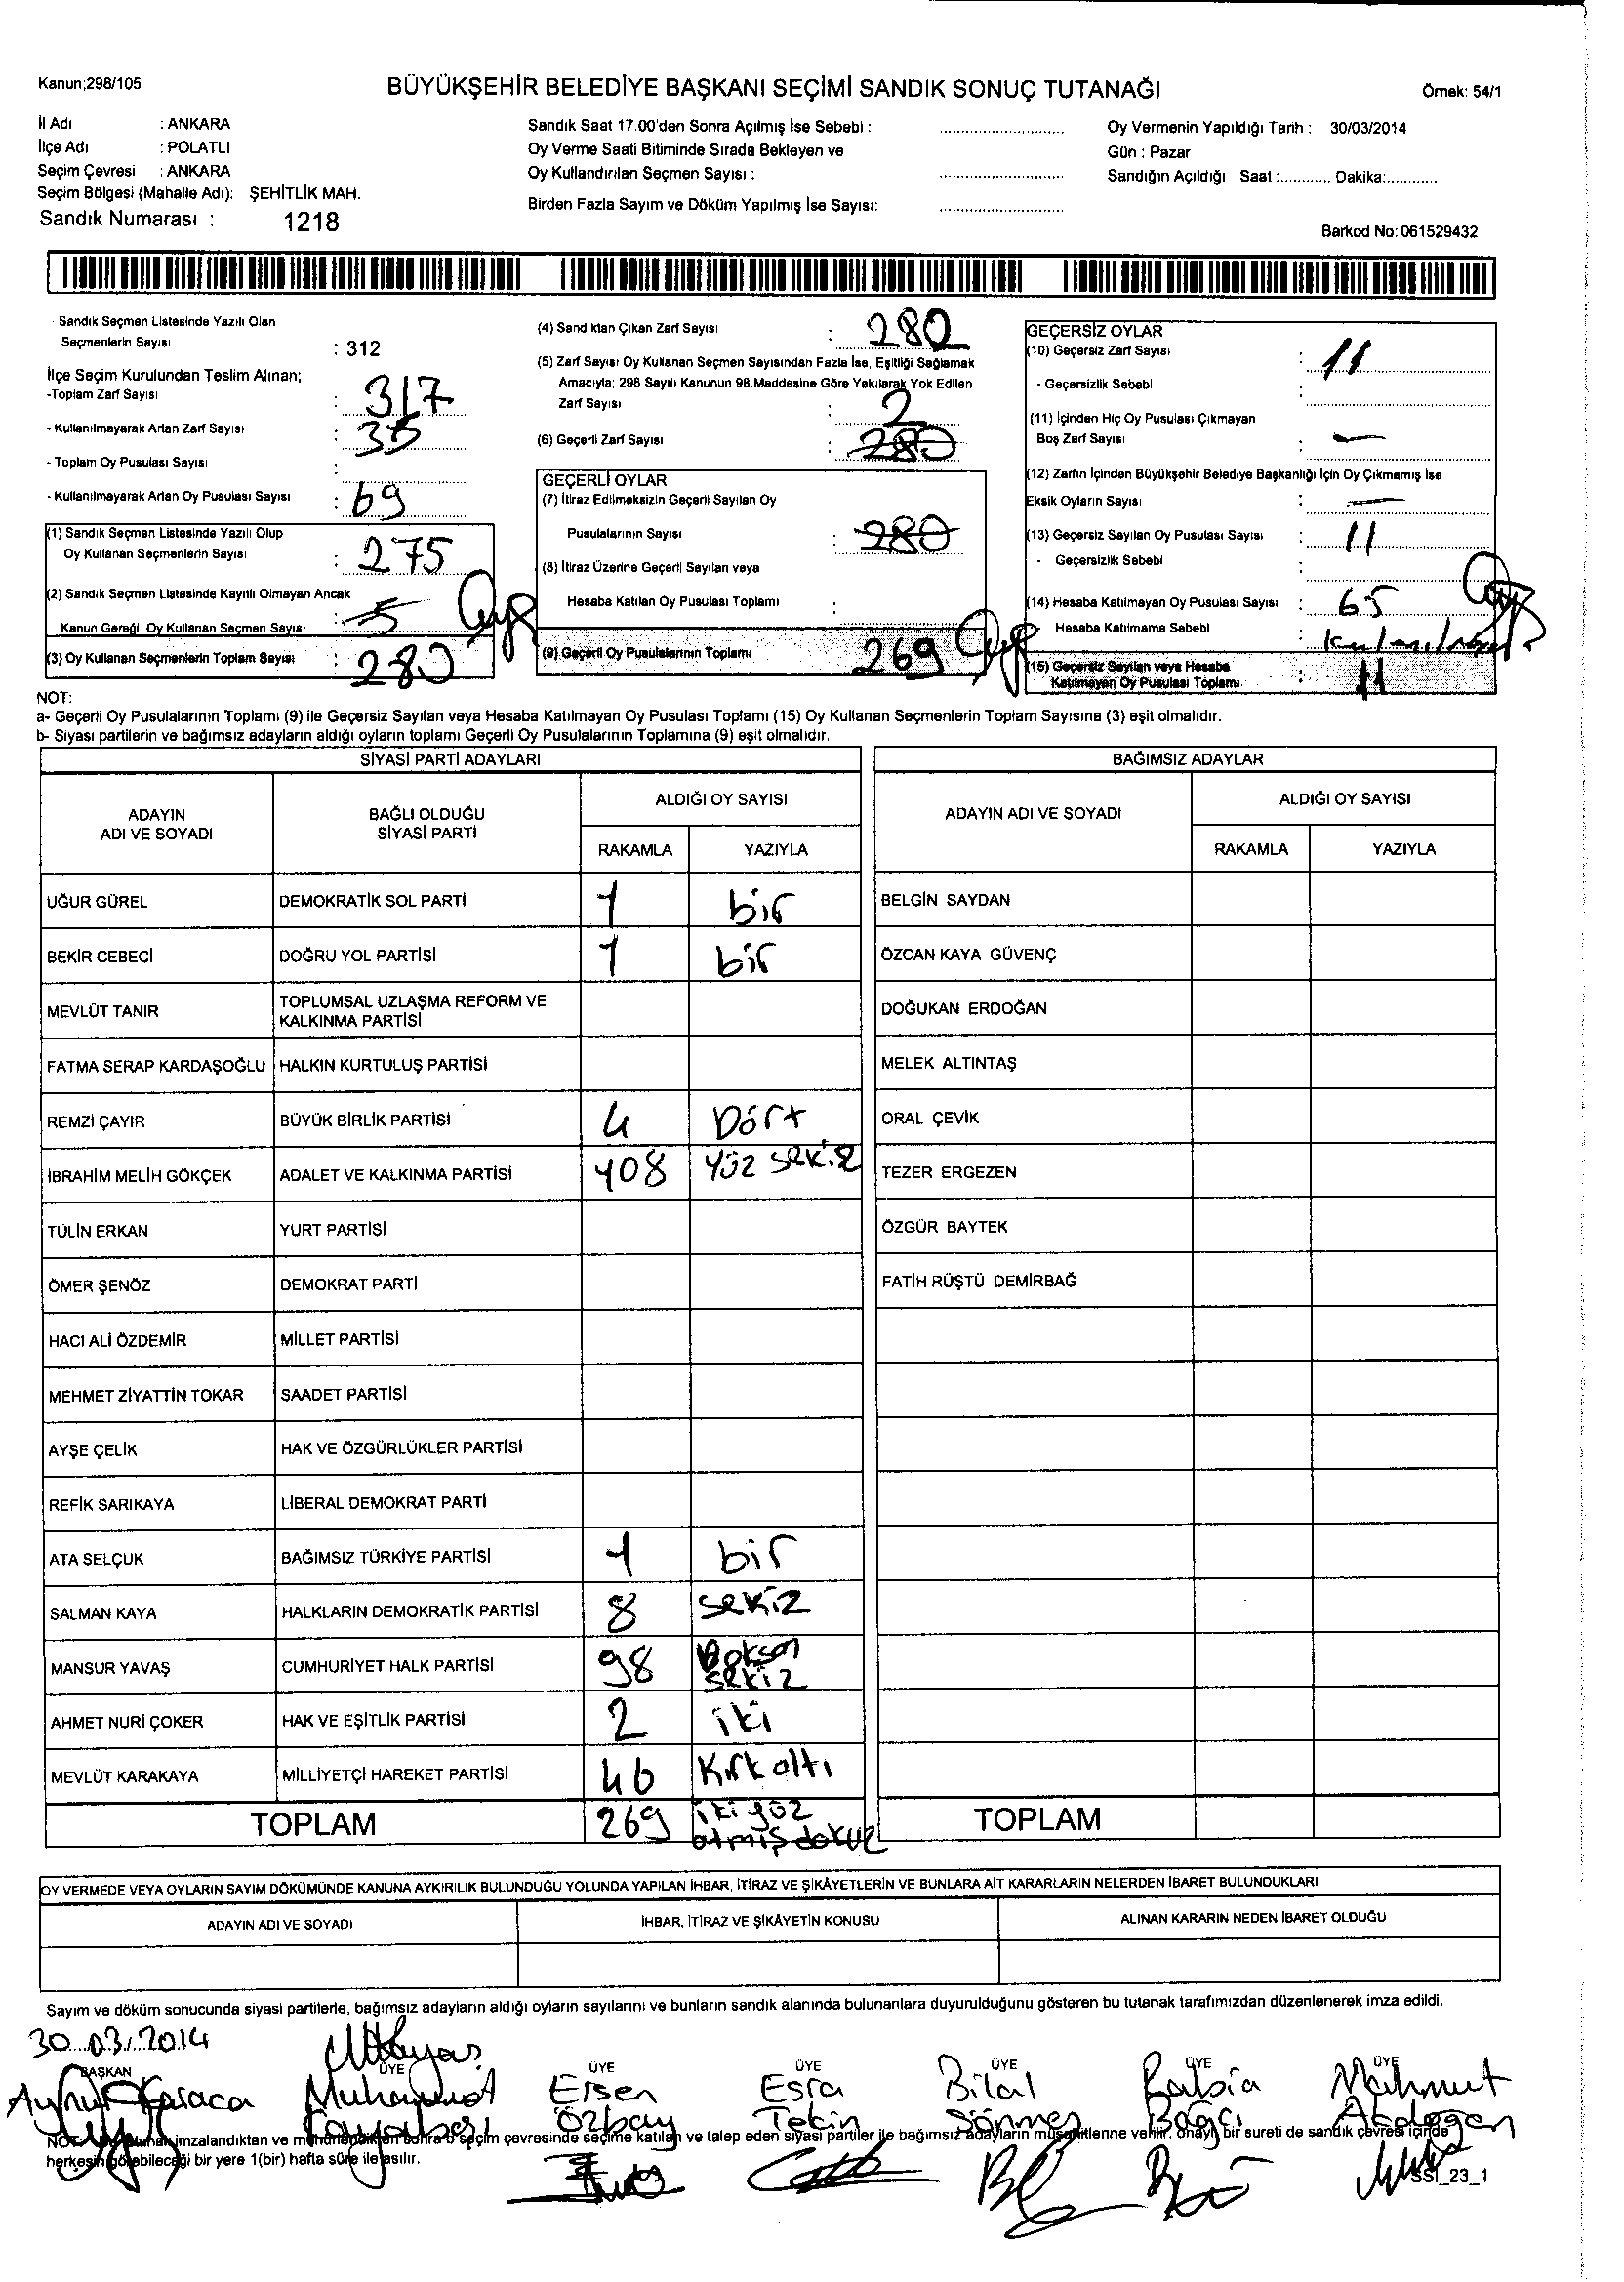 Kanun;298/105
BÜYÜKŞEHİR BELEDİYE BAŞKANI SEÇİMİ SANDIK SONUÇ TUTANAĞI
Örnek: 54/1
İl Adı : ANKARA
İlçe Adı : POLATLI
Seçim Çevresi : ANKARA
Seçim Bölgesi (Mahalle Adı): ŞEHİTLİK MAH.
Sandık Numarası : 1218
Sandık Saat 17.00'den Sonra Açılmış İse Sebebi :
Oy Verme Saati Bitiminde Sırada Bekleyen ve
Oy Kullandırılan Seçmen Sayısı :
Birden Fazla Sayım ve Döküm Yapılmış İse Sayısı:
Oy Vermenin Yapıldığı Tarih : 30/03/2014
Gün : Pazar
Sandığın Açıldığı Saat :........... Dakika:...........
Barkod No: 061529432
- Sandık Seçmen Listesinde Yazılı Olan
Seçmenlerin Sayısı : 312
İlçe Seçim Kurulundan Teslim Alınan;
-Toplam Zarf Sayısı : 317
- Kullanılmayarak Artan Zarf Sayısı : 35
- Toplam Oy Pusulası Sayısı :
- Kullanılmayarak Artan Oy Pusulası Sayısı : 69
(1) Sandık Seçmen Listesinde Yazılı Olup
Oy Kullanan Seçmenlerin Sayısı : 275
(2) Sandık Seçmen Listesinde Kayıtlı Olmayan Ancak
Kanun Gereği Oy Kullanan Seçmen Sayısı : 5
(3) Oy Kullanan Seçmenlerin Toplam Sayısı : 280
(4) Sandıktan Çıkan Zarf Sayısı : 280
(5) Zarf Sayısı Oy Kullanan Seçmen Sayısından Fazla İse, Eşitliği Sağlamak
Amacıyla; 298 Sayılı Kanunun 98.Maddesine Göre Yakılarak Yok Edilen
Zarf Sayısı : 2
(6) Geçerli Zarf Sayısı : 280
GEÇERLİ OYLAR
(7) İtiraz Edilmeksizin Geçerli Sayılan Oy
Pusulalarının Sayısı : 280
(8) İtiraz Üzerine Geçerli Sayılan veya
Hesaba Katılan Oy Pusulası Toplamı :
(9) Geçerli Oy Pusulalarının Toplamı 269
GEÇERSİZ OYLAR
(10) Geçersiz Zarf Sayısı : 11
- Geçersizlik Sebebi :
(11) İçinden Hiç Oy Pusulası Çıkmayan
Boş Zarf Sayısı : —
(12) Zarfın İçinden Büyükşehir Belediye Başkanlığı İçin Oy Çıkmamış İse
Eksik Oyların Sayısı : —
(13) Geçersiz Sayılan Oy Pusulası Sayısı : 11
- Geçersizlik Sebebi :
(14) Hesaba Katılmayan Oy Pusulası Sayısı : 65
Hesaba Katılmama Sebebi :
(15) Geçersiz Sayılan veya Hesaba
Katılmayan Oy Pusulası Toplamı : 11
NOT:
a- Geçerli Oy Pusulalarının Toplamı (9) ile Geçersiz Sayılan veya Hesaba Katılmayan Oy Pusulası Toplamı (15) Oy Kullanan Seçmenlerin Toplam Sayısına (3) eşit olmalıdır.
b- Siyası partilerin ve bağımsız adayların aldığı oyların toplamı Geçerli Oy Pusulalarının Toplamına (9) eşit olmalıdır.
SİYASİ PARTİ ADAYLARI
ADAYIN ADI VE SOYADI
BAĞLI OLDUĞU SİYASİ PARTİ
ALDIĞI OY SAYISI
RAKAMLA YAZIYLA
UĞUR GÜREL DEMOKRATİK SOL PARTİ 1 bir
BEKİR CEBECİ DOĞRU YOL PARTİSİ 1 bir
MEVLÜT TANIR TOPLUMSAL UZLAŞMA REFORM VE
KALKINMA PARTİSİ
FATMA SERAP KARDAŞOĞLU HALKIN KURTULUŞ PARTİSİ
REMZİ ÇAYIR BÜYÜK BİRLİK PARTİSİ 4 Dört
İBRAHİM MELİH GÖKÇEK ADALET VE KALKINMA PARTİSİ 108 Yüz sekiz
TÜLİN ERKAN YURT PARTİSİ
ÖMER ŞENÖZ DEMOKRAT PARTİ
HACI ALİ ÖZDEMİR MİLLET PARTİSİ
MEHMET ZİYATTİN TOKAR SAADET PARTİSİ
AYŞE ÇELİK HAK VE ÖZGÜRLÜKLER PARTİSİ
REFİK SARIKAYA LİBERAL DEMOKRAT PARTİ
ATA SELÇUK BAĞIMSIZ TÜRKİYE PARTİSİ 1 bir
SALMAN KAYA HALKLARIN DEMOKRATİK PARTİSİ 8 sekiz
MANSUR YAVAŞ CUMHURİYET HALK PARTİSİ 98 Doksan sekiz
AHMET NURİ ÇOKER HAK VE EŞİTLİK PARTİSİ 2 iki
MEVLÜT KARAKAYA MİLLİYETÇİ HAREKET PARTİSİ 46 Kırk altı
TOPLAM 269 iki yüz atmış dokuz
BAĞIMSIZ ADAYLAR
ADAYIN ADI VE SOYADI
ALDIĞI OY SAYISI
RAKAMLA YAZIYLA
BELGİN SAYDAN
ÖZCAN KAYA GÜVENÇ
DOĞUKAN ERDOĞAN
MELEK ALTINTAŞ
ORAL ÇEVİK
TEZER ERGEZEN
ÖZGÜR BAYTEK
FATİH RÜŞTÜ DEMİRBAĞ
TOPLAM
OY VERMEDE VEYA OYLARIN SAYIM DÖKÜMÜNDE KANUNA AYKIRILIK BULUNDUĞU YOLUNDA YAPILAN İHBAR, İTİRAZ VE ŞİKÂYETLERİN VE BUNLARA AİT KARARLARIN NELERDEN İBARET BULUNDUKLARI
ADAYIN ADI VE SOYADI
İHBAR, İTİRAZ VE ŞİKÂYETİN KONUSU
ALINAN KARARIN NEDEN İBARET OLDUĞU
Sayım ve döküm sonucunda siyasi partilerle, bağımsız adayların aldığı oyların sayılarını ve bunların sandık alanında bulunanlara duyurulduğunu gösteren bu tutanak tarafımızdan düzenlenerek imza edildi.
30.03.2014
BAŞKAN ÜYE ÜYE ÜYE ÜYE ÜYE ÜYE
Karaca Ersen Esra Bilal Mahmut
Özbay Tekin Sönmez Bağcı
NOT: imzalandıktan ve sonra o seçim çevresinde seçime katılan ve talep eden siyasi partiler ile bağımsız adayların müşahitlerine verilir, onaylı bir sureti de sandık çevresi içinde
herkesin görebileceği bir yere 1(bir) hafta süre ile asılır.
SSI_23_1